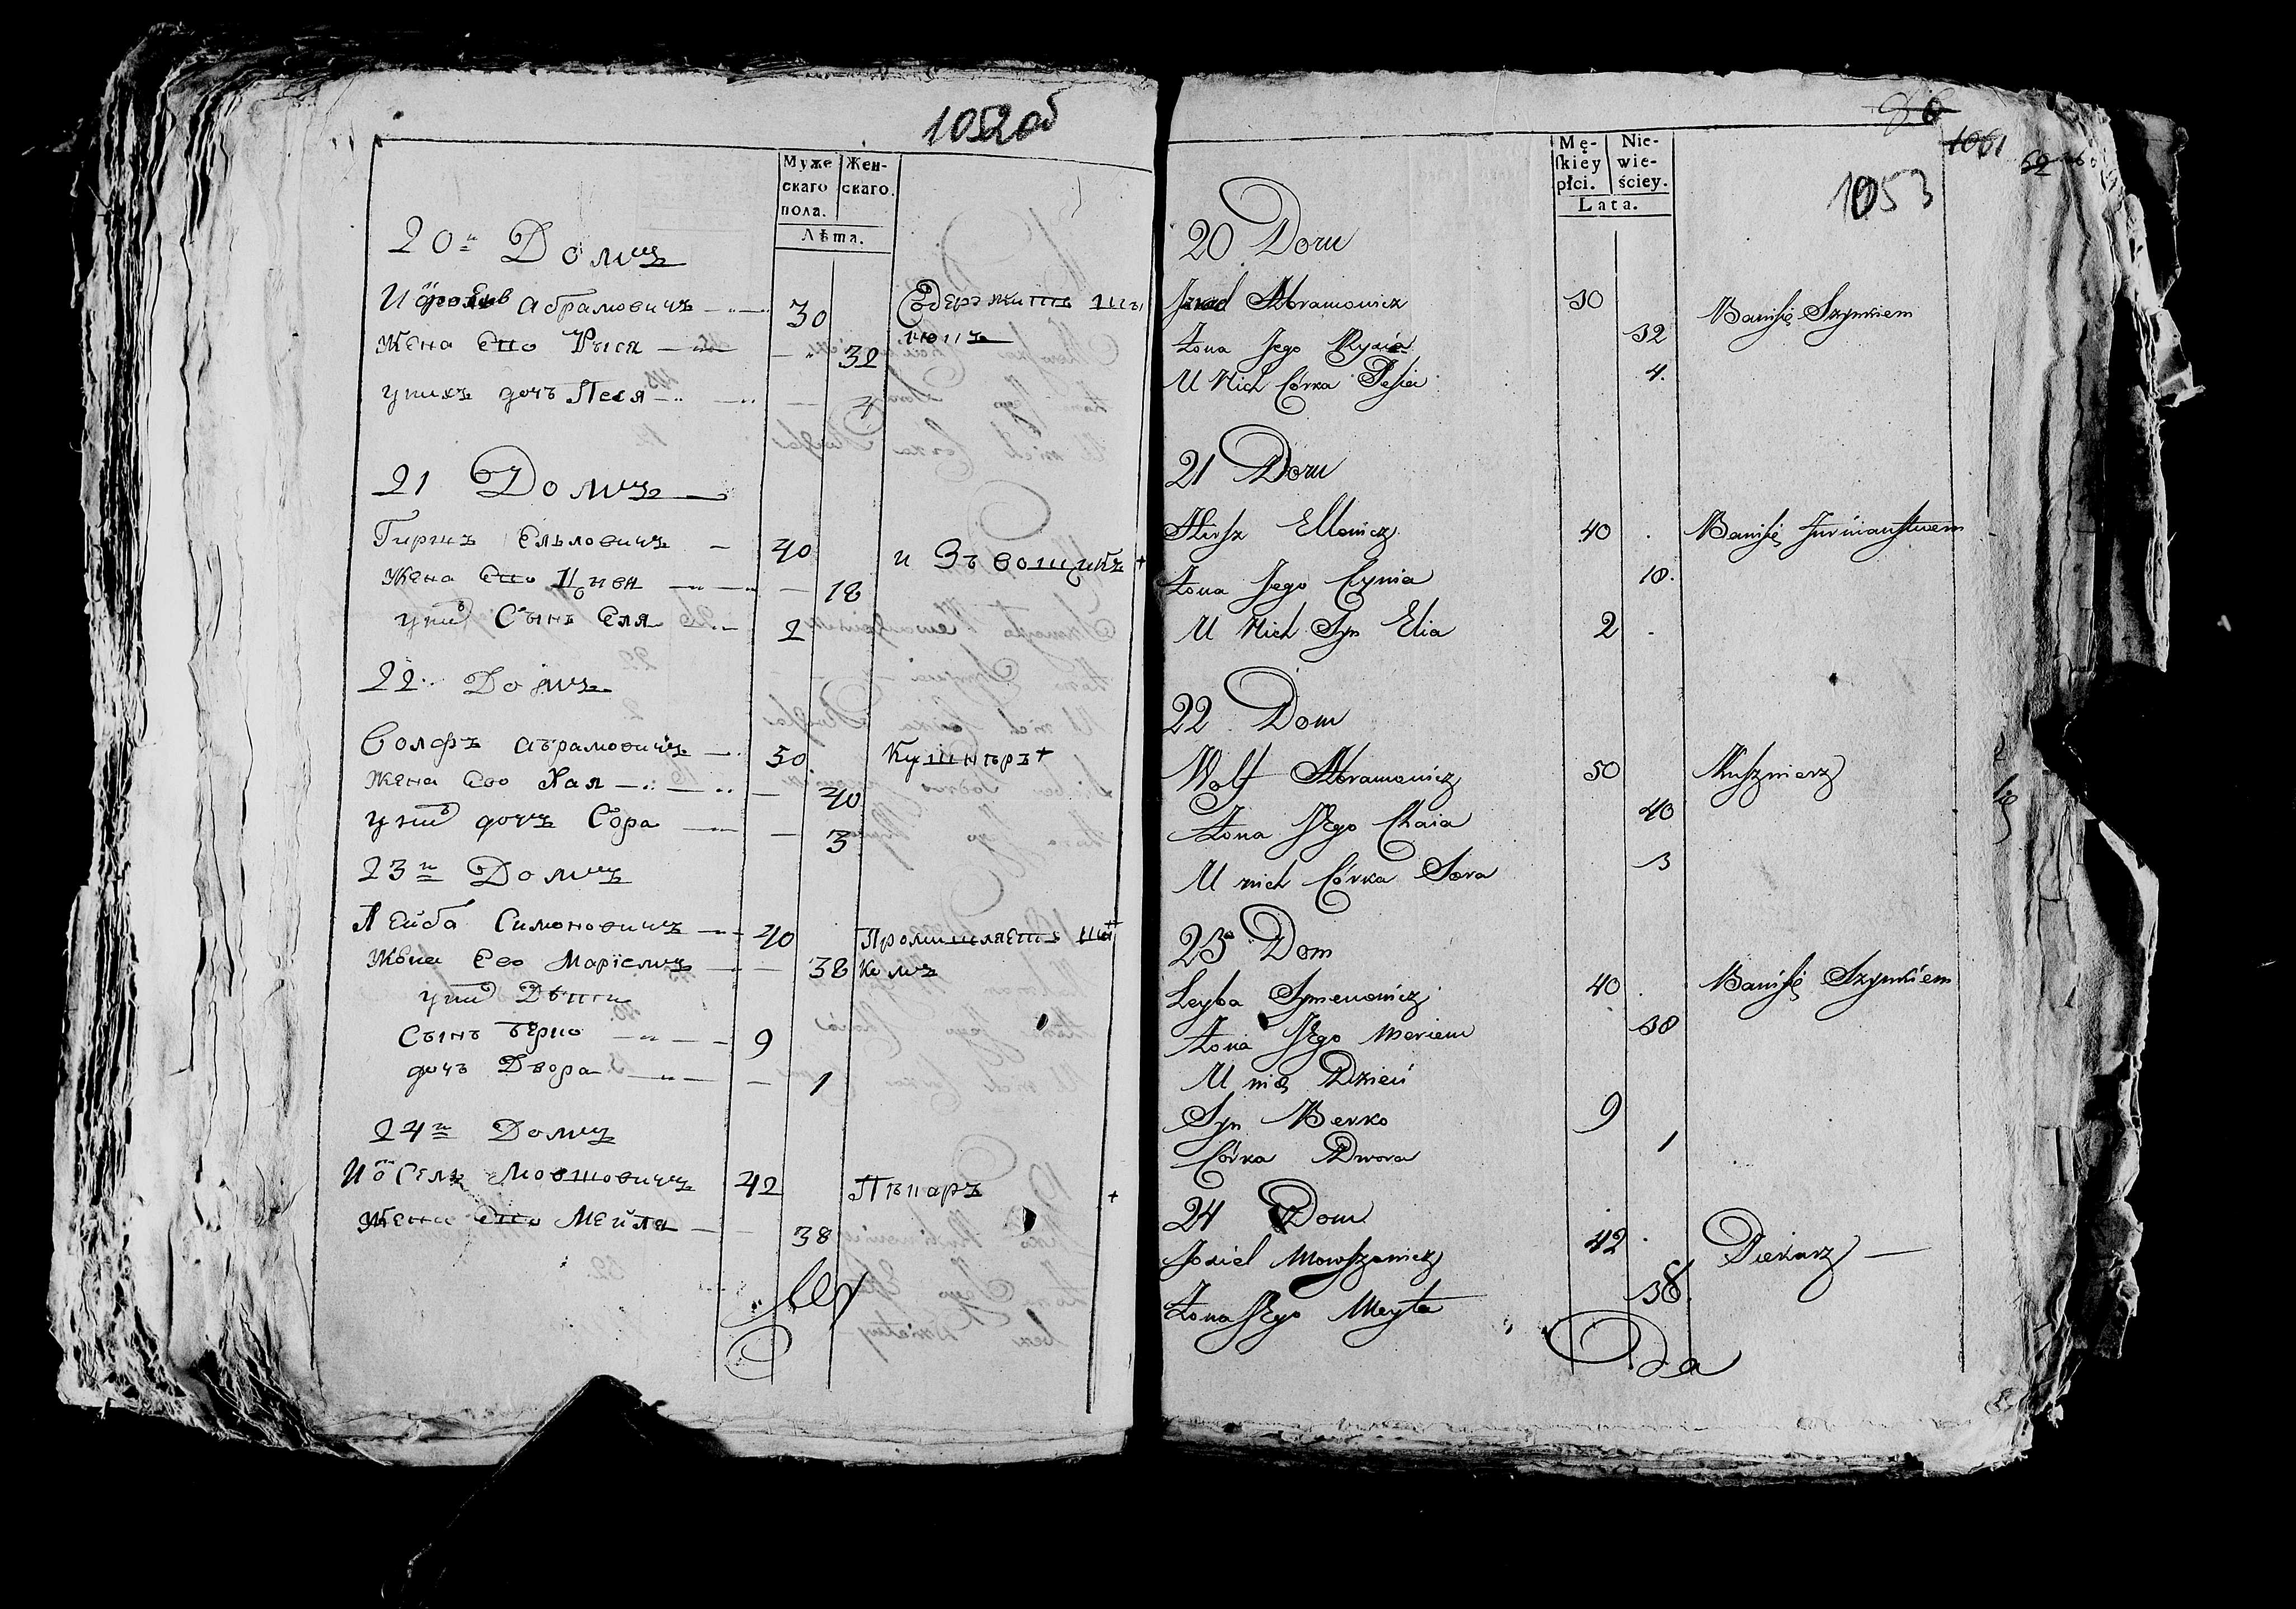 1052об
Муже скаго пола.
Жен- скаго.
Лѣта.
20й Домъ
Абрамовичъ 30 Содержитъ
Жена Его Рыся 32
у нихъ дочь Песя 4
21 Домъ
Гиршъ Ельловичъ 40 Извощикъ +
Жена Его 18
у ни Сынъ Еля 2
22. Домъ
Волфъ Абрамовичъ 50 Кушнѣръ +
Жена Его Хая 40
у ни дочь Сора 3
23й Домъ
Лейба Симоновичъ 40 Промишляетъ шин
Жена Его Маріемъ 38 комъ
у ни Дѣти
Сынъ Берко 9
дочь Двора 1
24й Домъ
Иосель Мовшовичъ 42 Пѣкаръ +
Жена Его Мейля 38
1061
1053
Mę- skiey płci.
Nie- wie- ściey.
Lata.
20 Dom
Abramowicz 30 Bawi się Szynkiem
Żona Jego Rysia 32
U Nich Córka Pesia 4.
21 Dom
Hirsz Ellowicz 40 Bawi się Furmaństwem
Żona Jego Cywia 18.
U Nich Syn Elia 2
22 Dom
Wolf Abramowicz 50 Kusznierz
Żona Jego Chaia 40
U nich Córka Sora 3
23 Dom
Leyba Symonowicz 40 Bawi się Szynkiem
Żona Jego Meriem 38
U nich Dzieci
Syn Berko 9
Córka Dwora 1
24 Dom
Josiel Mowszowicz 42 Piekarz
Żona Jego Meyta 38.